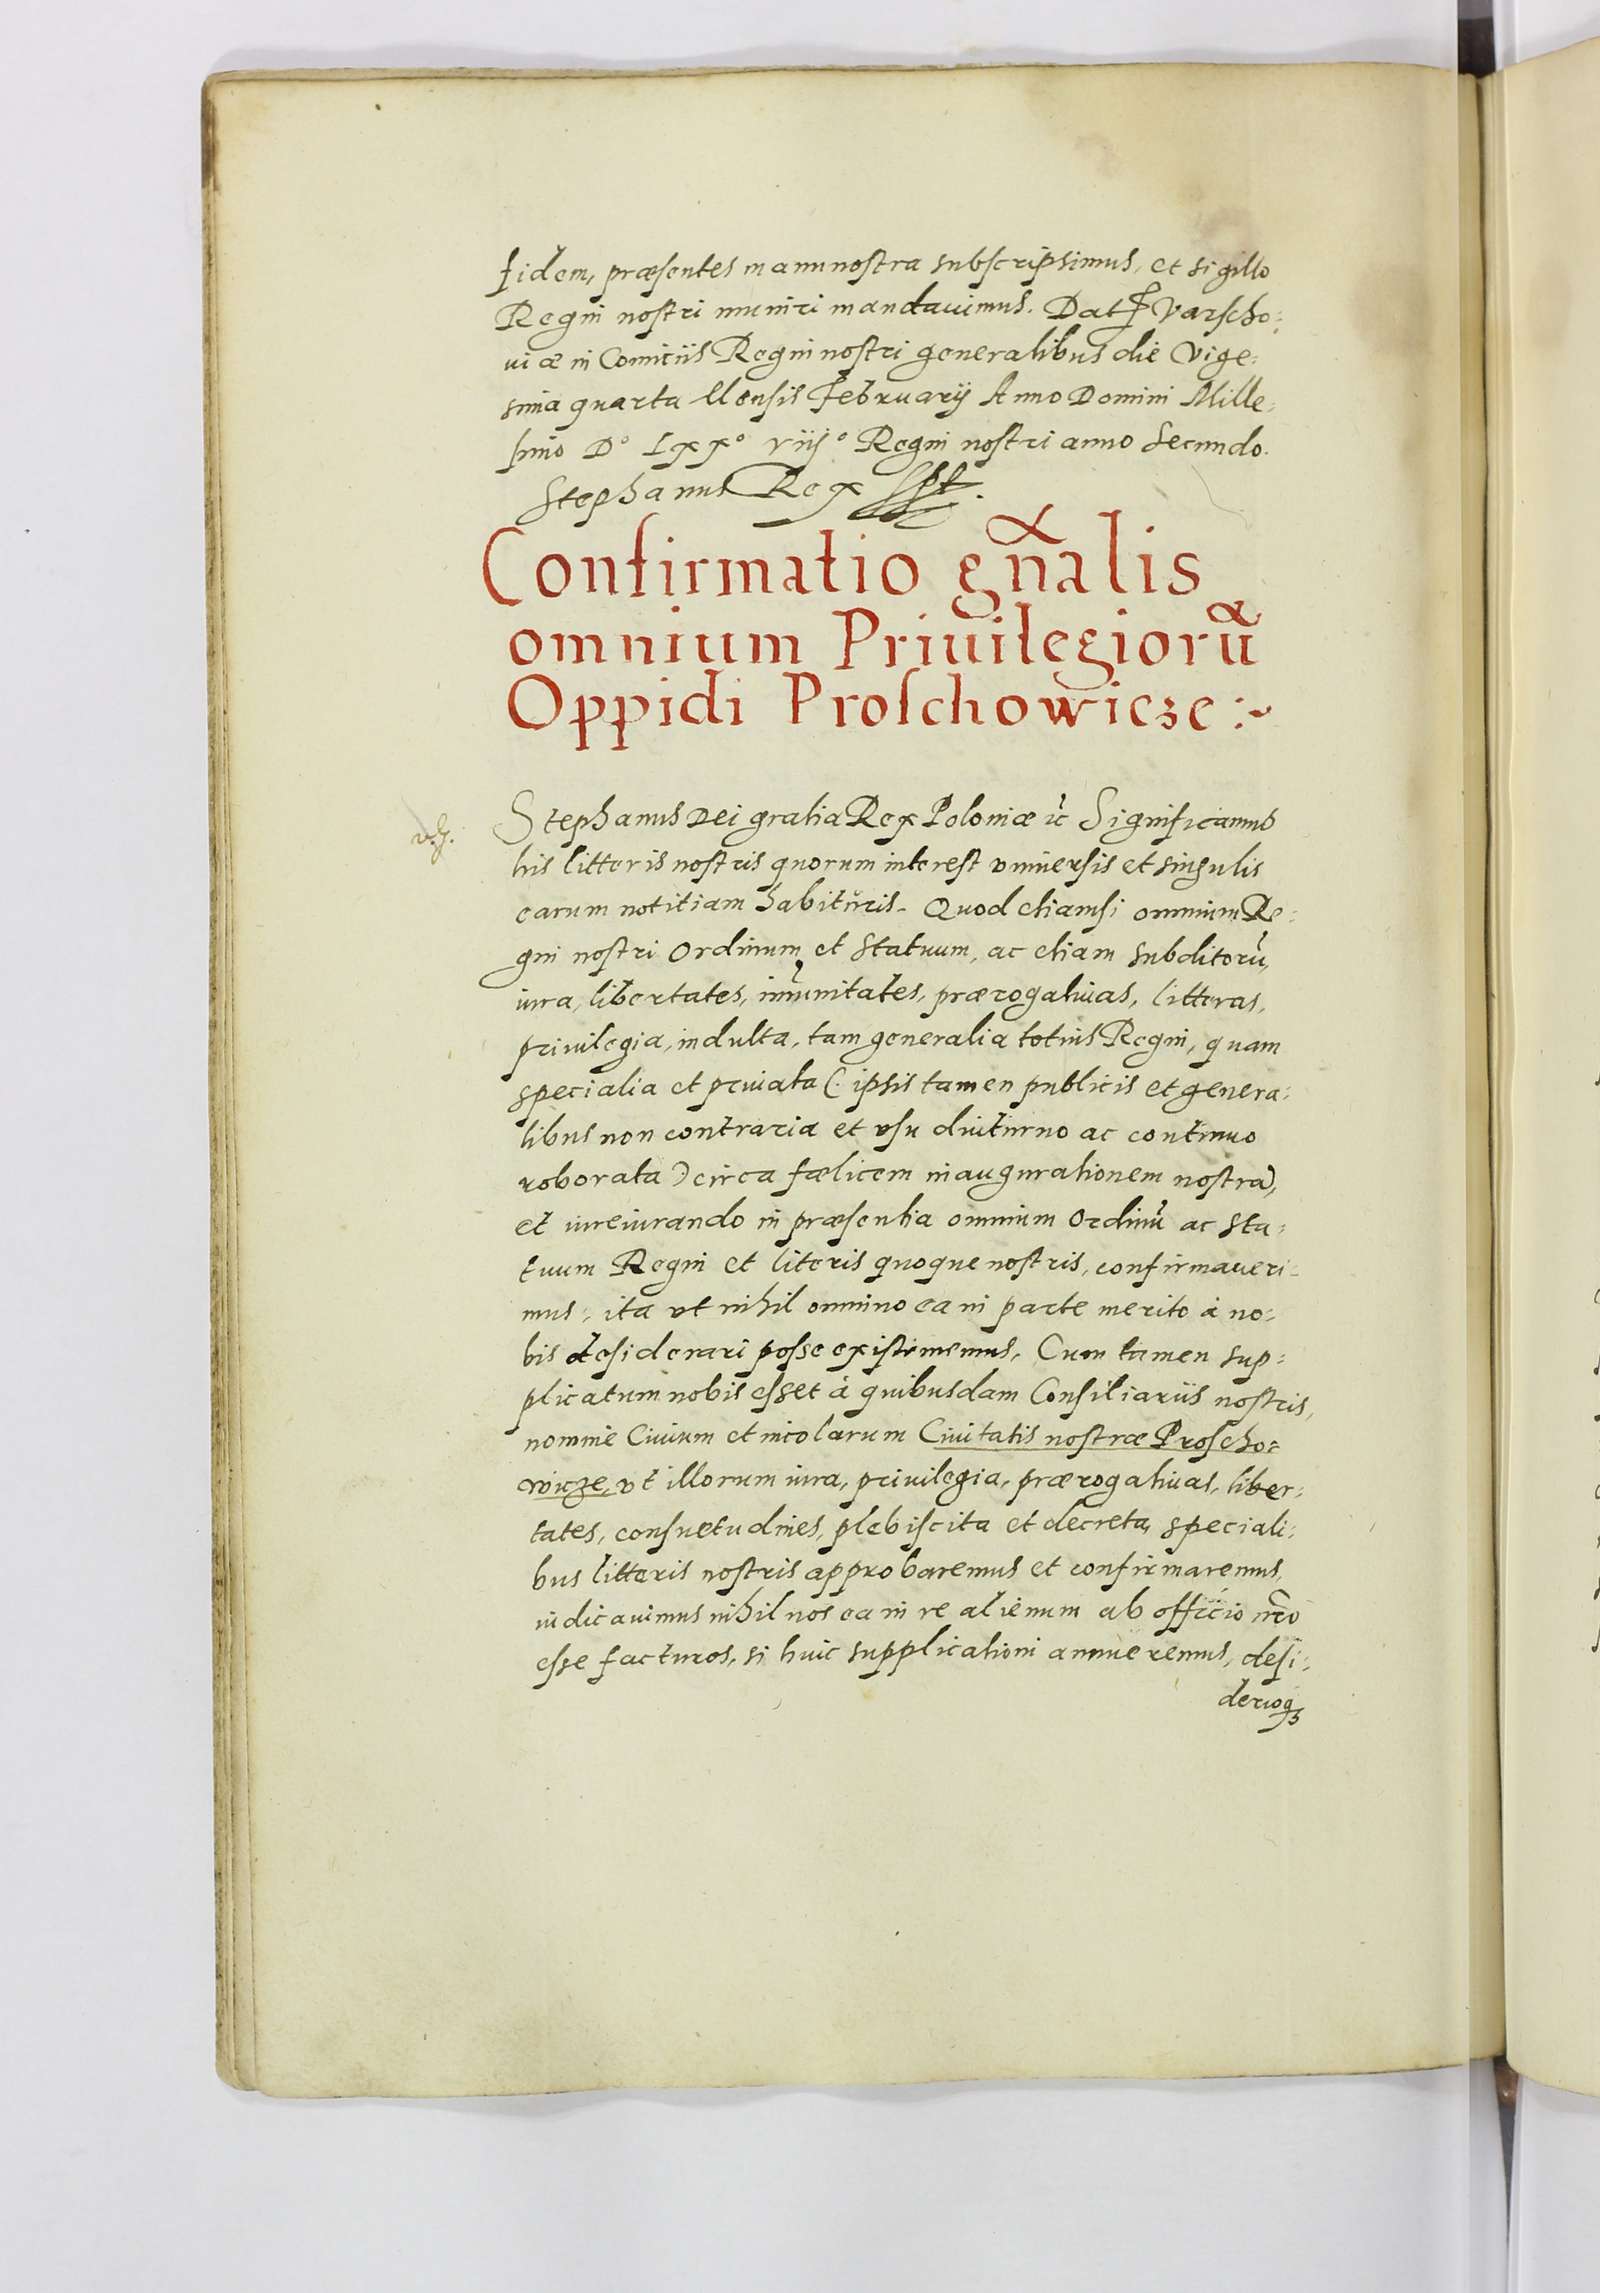 fidem, præsentes manu nostra subscripsimus, et sigillo
Regni nostri muniri mandauimus. Dat Varscho:
uiæ in Comitiis Regni nostri generalibus die Vige:
sima quarta Mensis Februarij Anno Domini Mille:
simo D° Lxx° viij° Regni nostri anno Secundo.
Stephanus Rex sst.
Confirmatio gn̄alis
omnium Priuilegiorū
Oppidi Proschowicze :~
Stephanus Dei gratia Rex Poloniæ ꝛc Significamus
his litteris nostris quorum interest vniuersis et singulis
earum notitiam habituris. Quod etiamsi omnium Re:
gni nostri Ordinum et Statuum, ac etiam subditorū,
iura, libertates, im̄unitates, prærogatiuas, litteras,
priuilegia, indulta, tam generalia totius Regni, quam
specialia et priuata (: ipsis tamen publicis et genera:
libus non contraria et vsu diuturno ac continuo
roborata :) circa fælicem inaugurationem nostrā,
et iureiurando in præsentia omnium Ordinū ac Sta:
tuum Regni et literis quoque nostris, confirmaueri:
mus, ita vt nihil omnino ea in parte merito à no:
bis desiderari posse existimemus, Cum tamen sup:
plicatum nobis esset à quibusdam Consiliariis nostris,
nomine Ciuium et incolarum Ciuitatis nostræ Proscho:
wicze, vt illorum iura, priuilegia, prærogatiuas, liber:
tates, consuetudines, plebiscita et decreta, speciali:
bus litteris nostris approbaremus et confirmaremus,
iudicauimus nihil nos ea in re alienum ab officio nr̄o
esse facturos, si huic supplicationi annueremus, desi:
derioqꝫ